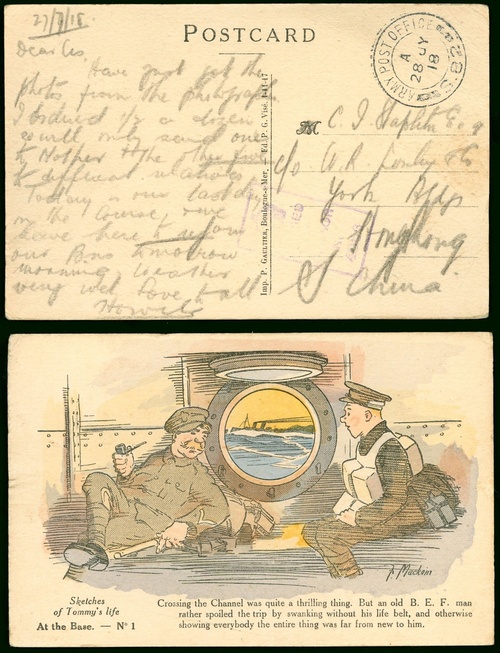 27/7/18
POSTCARD
ARMY POST OFFICE
A
28 JY
18
S.B.2
Dear Les
Have just got the
photos from the photograph
I ordered 1/2 a dozen
so will only send one
to Mother & the other five
to different relatives
Today is our last day
on the Course, we
leave here to rejoin
our Bns tomorrow
morning, weather
very wet Love to all
Howard
Imp. P. GAULTIER, Boulogne-s-Mer, Ed. P. G. Visé, 14-1-17
M C. J. Esq
c/o W. R. & Co
York Bldgs
Hongkong
S China.
F. Mackain
Sketches
of Tommy's life
At the Base. — N° 1
Crossing the Channel was quite a thrilling thing. But an old B. E. F. man
rather spoiled the trip by swanking without his life belt, and otherwise
showing everybody the entire thing was far from new to him.